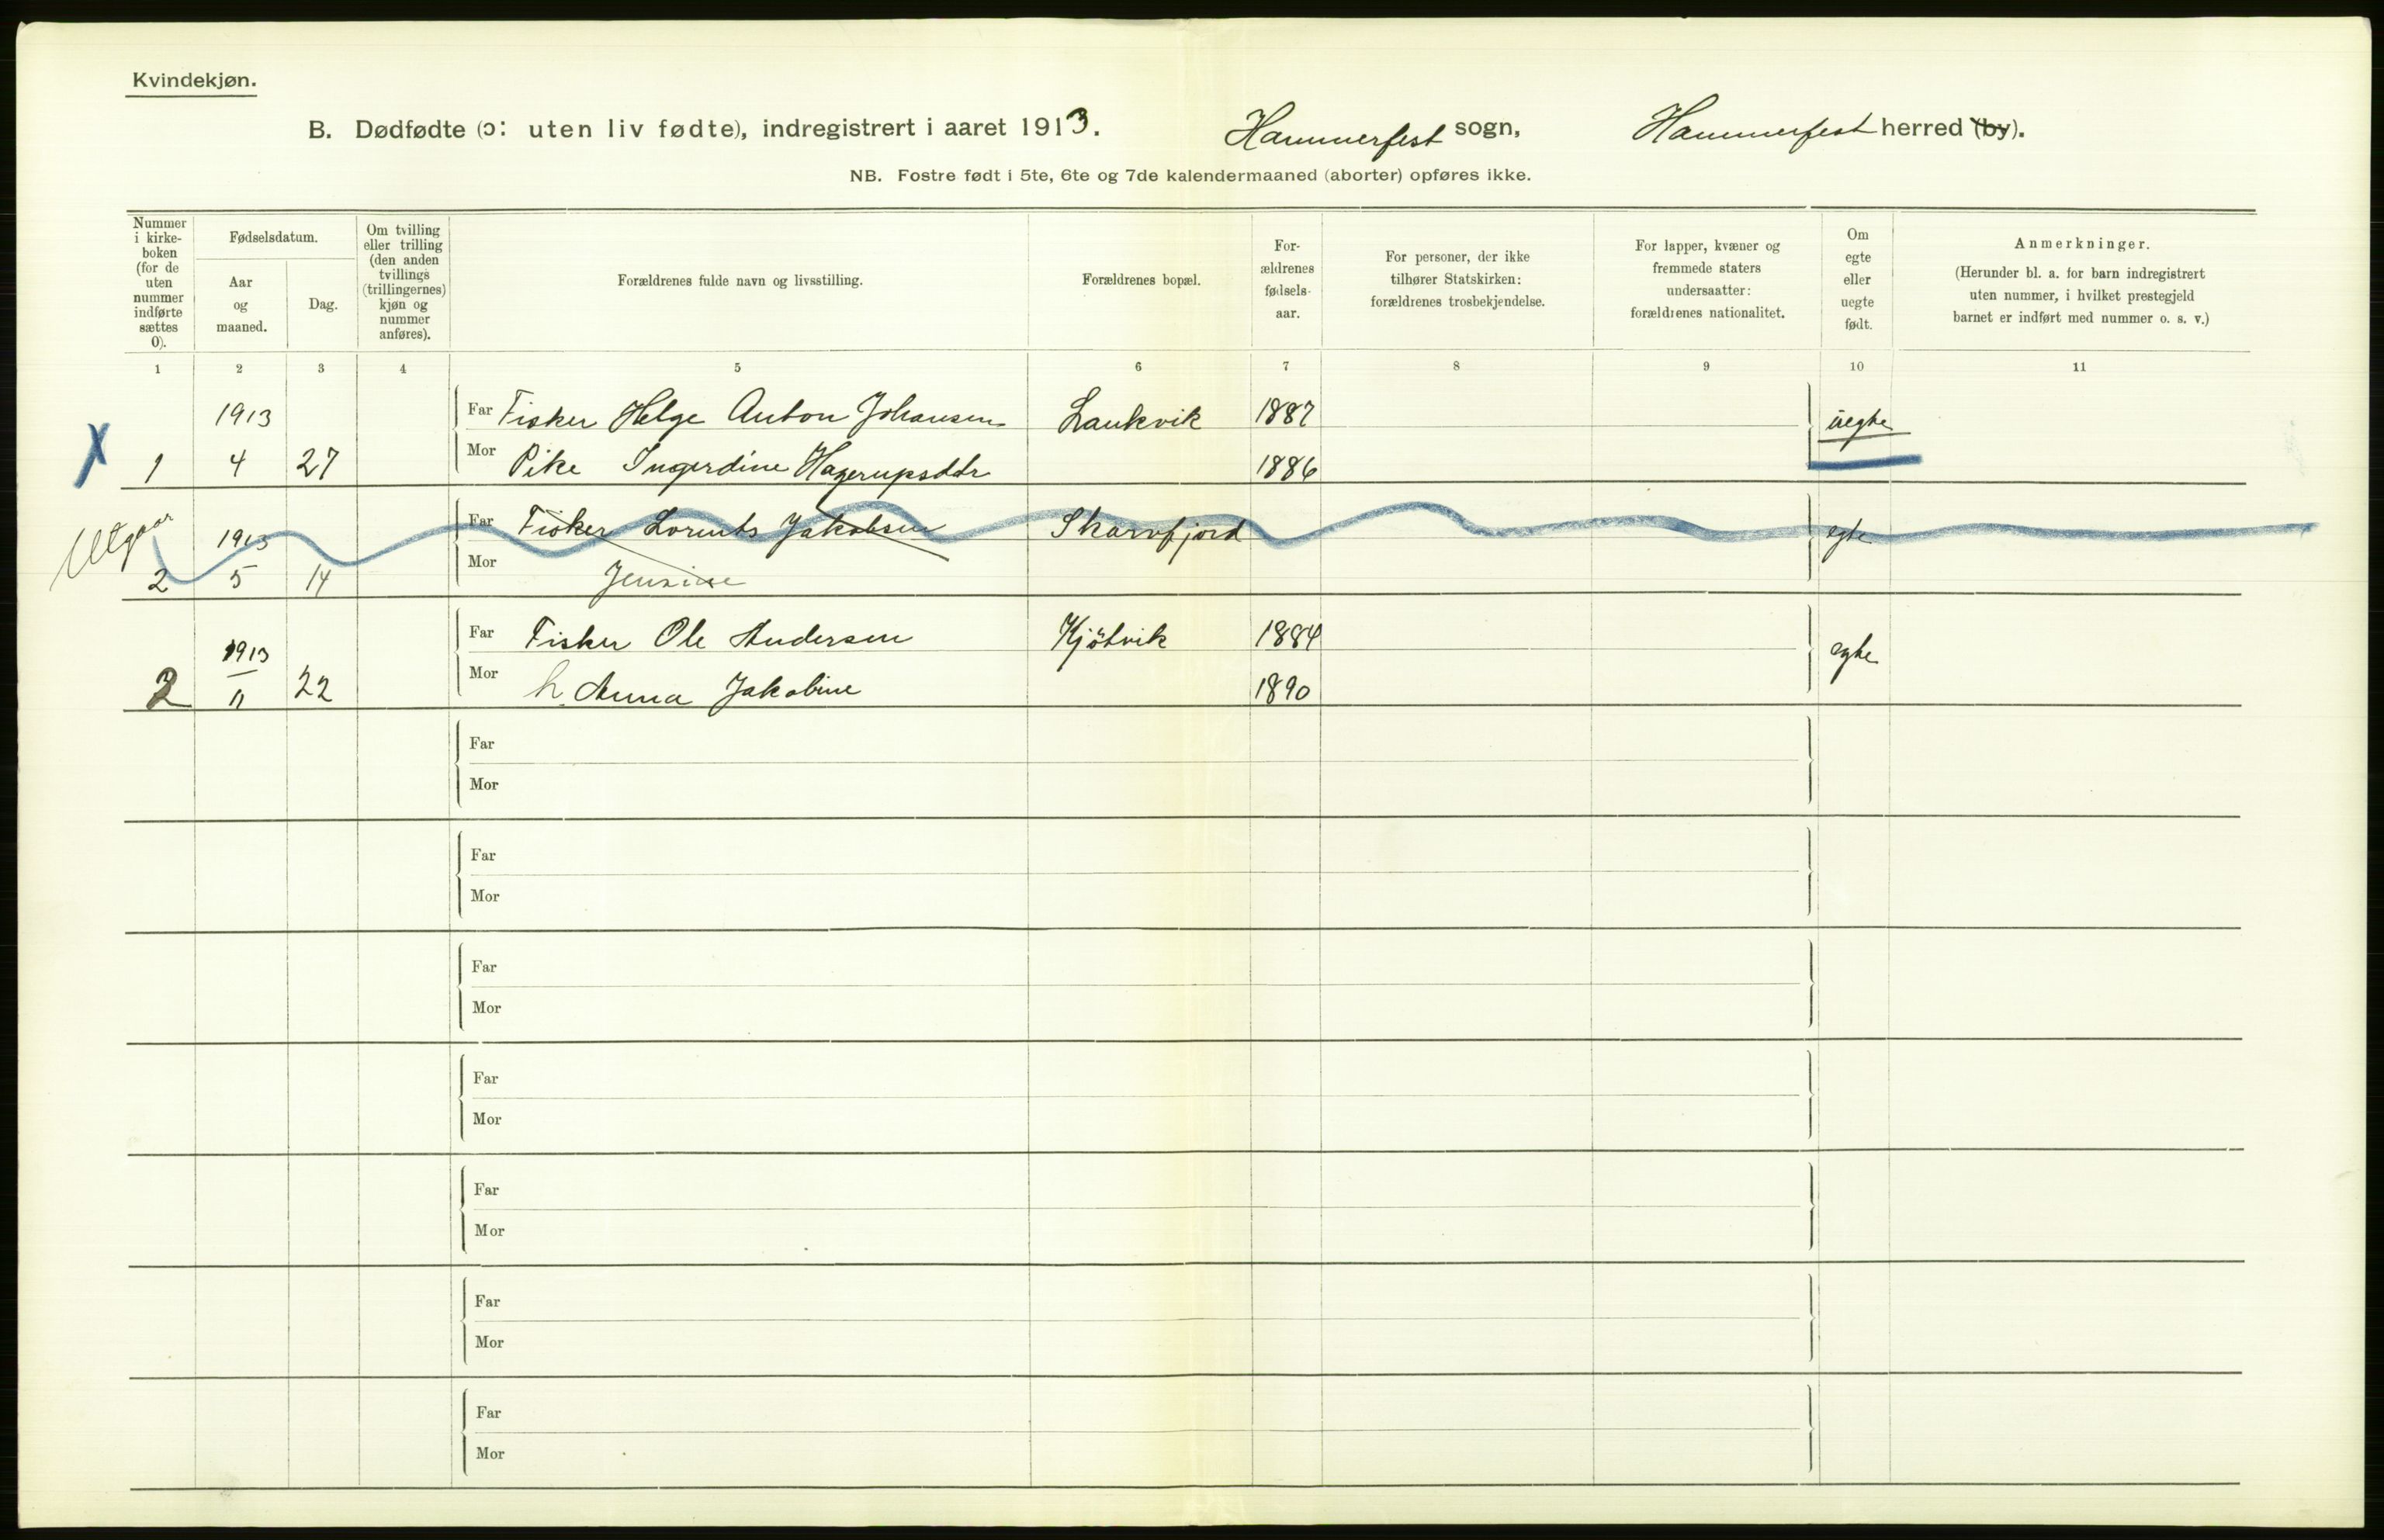 Kvindekjøn.
B. Dødfødte (ɔ: uten liv fødte), indregistrert i aaret 1913. Hammerfest sogn, Hammerfest herred (by).
NB. Fostre født i 5te, 6te og 7de kalendermaaned (aborter) opføres ikke.
Nummer
i kirke-
boken
(for de
uten
nummer
indførte
sættes
0).
Fødselsdatum.
Aar
og
maaned.
Dag.
Om tvilling
eller trilling
(den anden
tvillings
(trillingernes)
kjøn og
nummer
anføres).
Forældrenes fulde navn og livsstilling.
Forældrenes bopæl.
For-
ældrenes
fødsels-
aar.
For personer, der ikke
tilhører Statskirken:
forældrenes trosbekjendelse.
For lapper, kvæner og
fremmede staters
undersaatter:
forældrenes nationalitet.
Om
egte
eller
uegte
født.
Anmerkninger.
(Herunder bl. a. for barn indregistrert
uten nummer, i hvilket prestegjeld
barnet er indført med nummer o. s. v.)
1 2 3 4 5 6 7 8 9 10 11
1913 Far Fisker Helge Anton Johansen Laukvik 1887 uegte
X 1 4 27 Mor Pike Ingerdine Hagerupsdtr 1886
Utgaar 1913 Far Fisker Lorents Jakobsen Skarvfjord egte
2 5 14 Mor Jensine
1913 Far Fisker Ole Andersen Kjøtvik 1884 egte
2 11 22 Mor h. Anna Jakobine 1890
Far
Mor
Far
Mor
Far
Mor
Far
Mor
Far
Mor
Far
Mor
Far
Mor